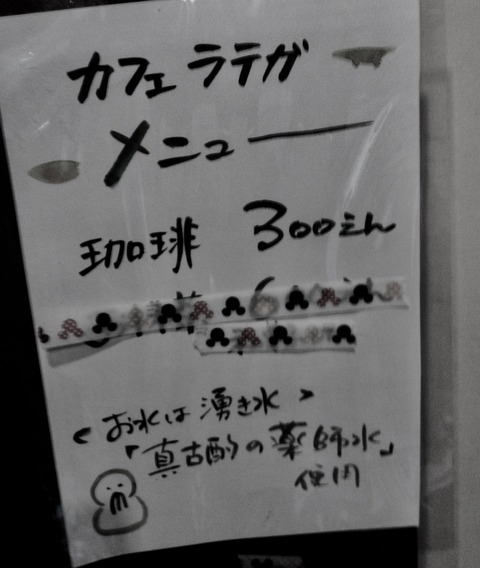 カフェ ラテガ
メニュー
珈琲 300えん
<お水は湧き水>
「真古酌の薬師水」
使用